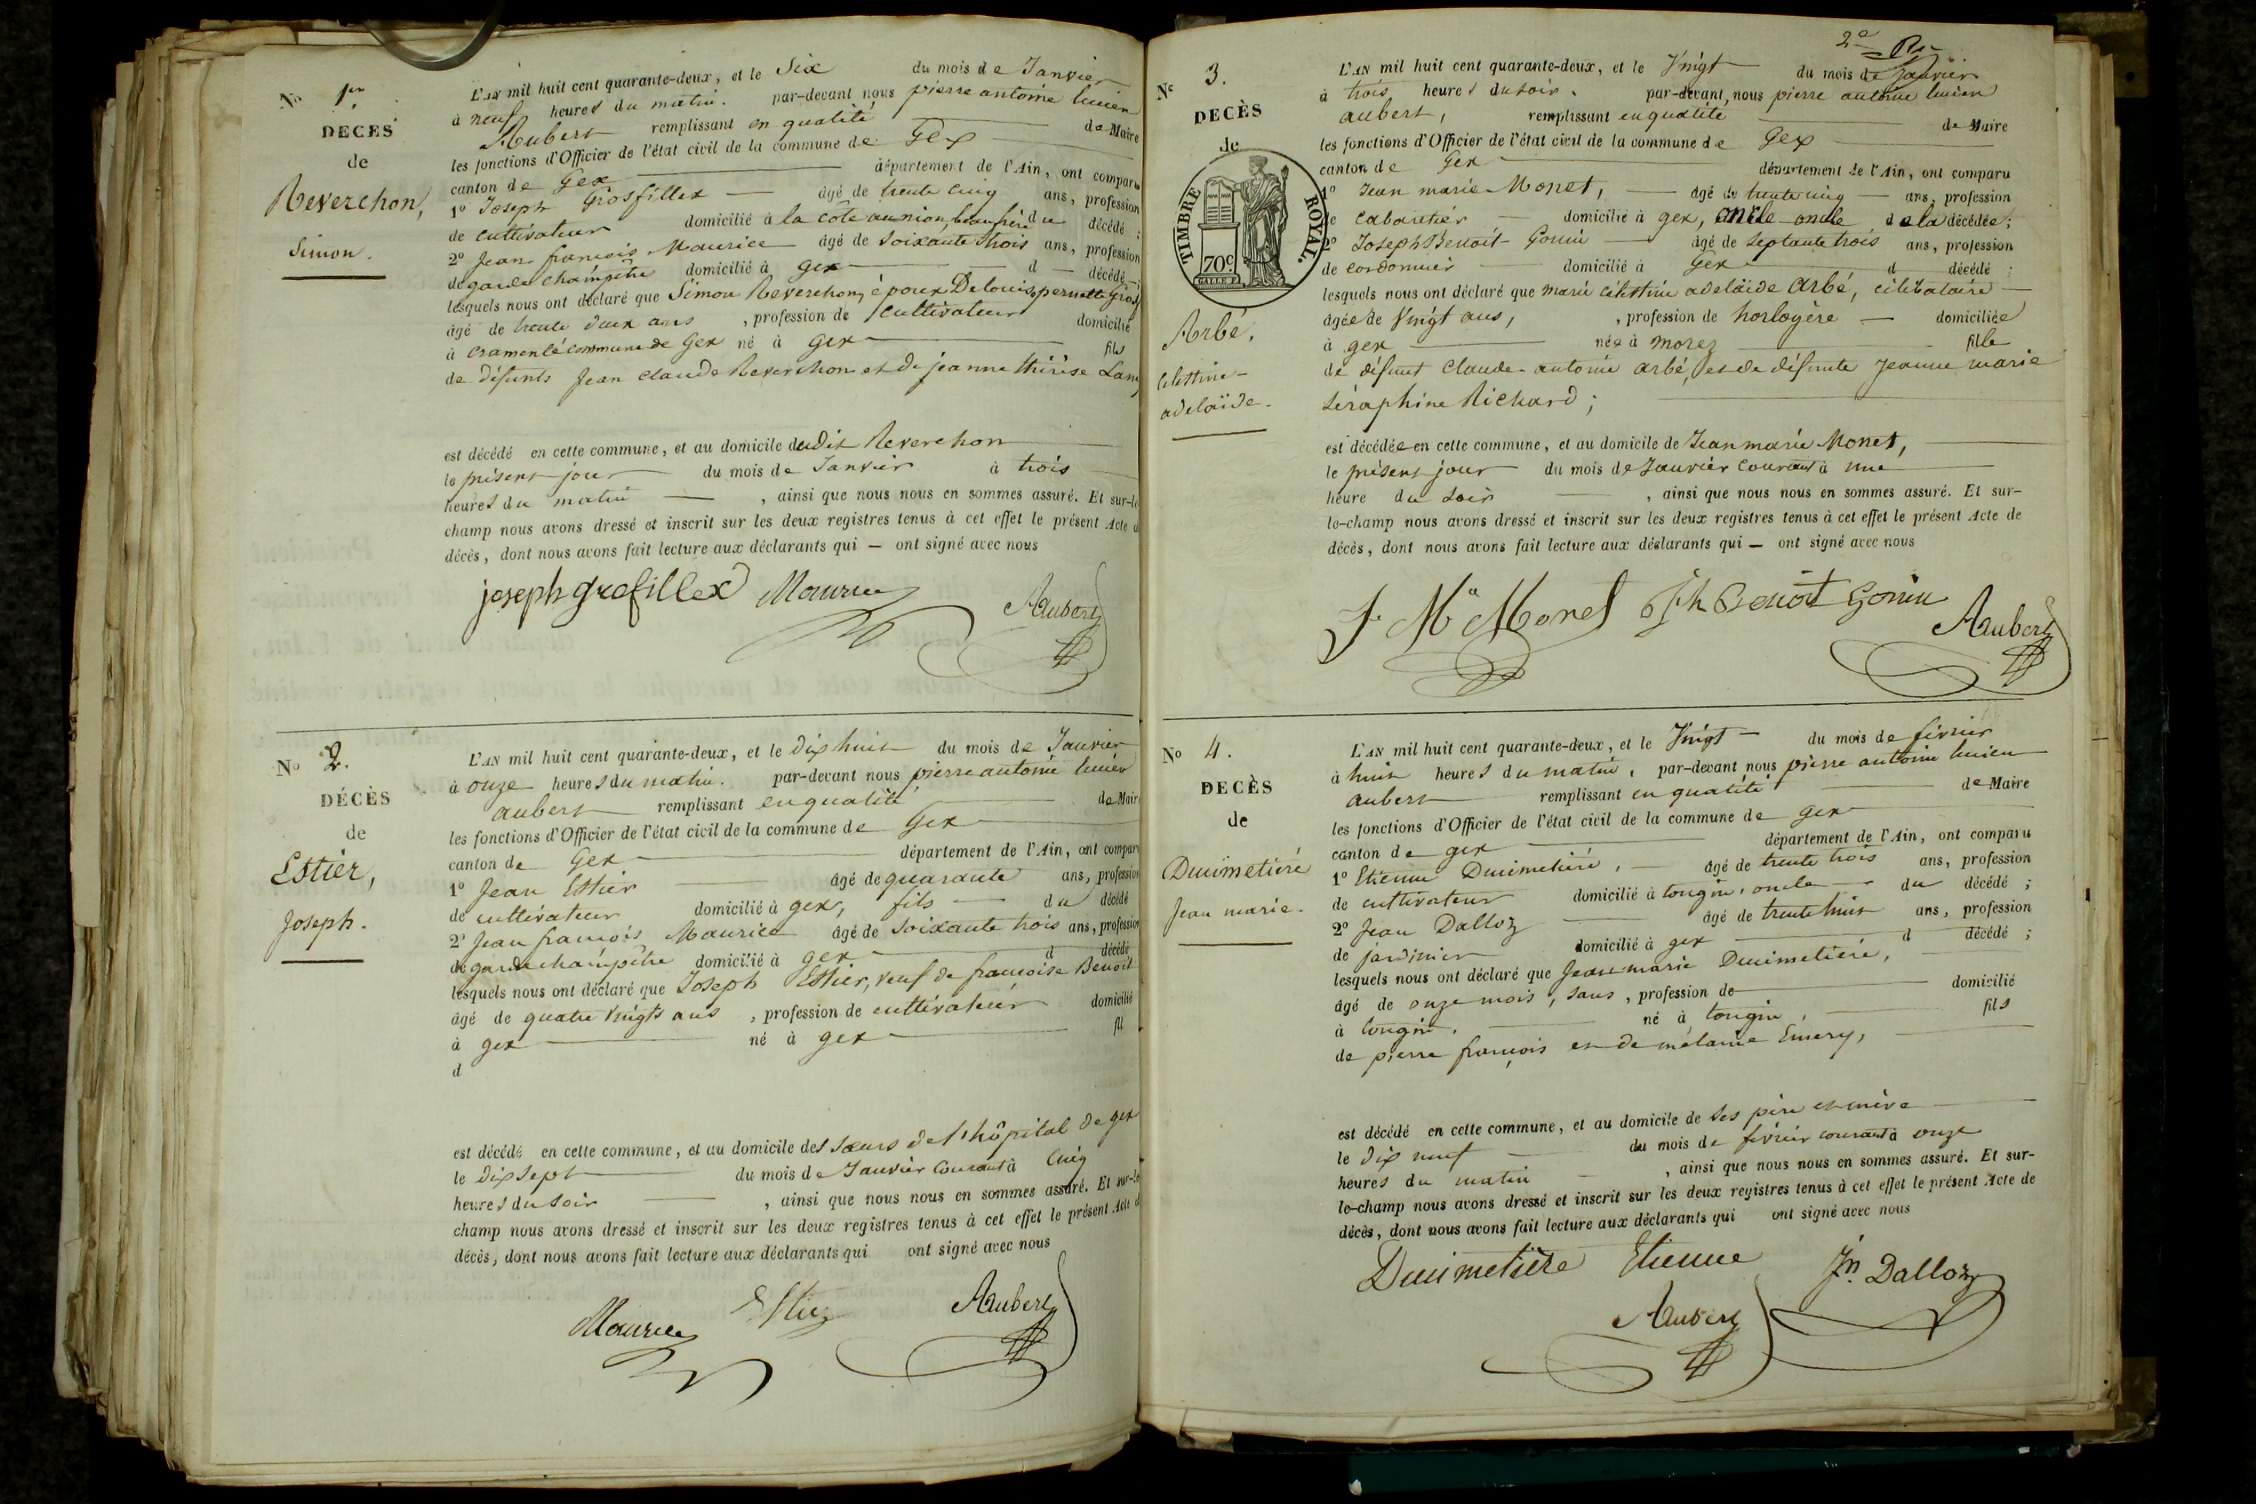 N° 1er.
DECES
de
Reverchon,
Simon.
L'AN mil huit cent quarante-deux, et le Six du mois de Janvier
à neuf heures du matin. par-devant nous pierre antoine lucien
Aubert remplissant en qualité de Maire
les fonctions d'Officier de l'état civil de la commune de Gex
canton de Gex département de l'Ain, ont comparu
1° Joseph Grosfillex âgé de trente cinq ans, profession
de cultivateur domicilié à la côte au nion, beau frère du décédé ;
2° Jean françois Maurice âgé de soixante trois ans, profession
de garde champêtre domicilié à gex d décédé ;
lesquels nous ont déclaré que Simon Reverchon, époux De louise pernette Grosf
âgé de trente deux ans , profession de cultivateur domicilié
à cramenté commune de Gex né à Gex fils
de défunts Jean Claude Reverchon et de jeanne thérèse Lam
est décédé en cette commune, et au domicile dudit Reverchon
le présent jour du mois de Janvier à trois
heures du matin , ainsi que nous nous en sommes assuré. Et sur-le
champ nous avons dressé et inscrit sur les deux registres tenus à cet effet le présent Acte d
décès, dont nous avons fait lecture aux déclarants qui — ont signé avec nous
joseph grofillex Maurice Aubert
N° 2.
DÉCÈS
de
Estier,
Joseph.
L'AN mil huit cent quarante-deux, et le dix huit du mois de Janvier
à onze heures du matin. par-devant nous pierre antoine lucien
aubert remplissant en qualité de Maire
les fonctions d'Officier de l'état civil de la commune de Gex
canton de Gex département de l'Ain, ont comparu
1° Jean Estier âgé de quarante ans, profession
de cultivateur domicilié à gex, fils du décédé
2° Jean françois Maurice âgé de soixante trois ans, profession
de garde champêtre domicilié à gex d décédé
lesquels nous ont déclaré que Joseph Estier, veuf de françoise Benoit
âgé de quatre vingts ans , profession de cultivateur domicilié
à gex né à gex fil
d
est décédé en cette commune, et au domicile des sœurs de l'hôpital de gex
le dix sept du mois de Janvier courant à cinq
heures du soir , ainsi que nous nous en sommes assuré. Et sur-le
champ nous avons dressé et inscrit sur les deux registres tenus à cet effet le présent Acte d
décès, dont nous avons fait lecture aux déclarants qui ont signé avec nous
Maurice Estier Aubert
2e
N° 3.
DECÈS
de
TIMBRE ROYAL.
70c
Arbé,
Célestine-
adelaïde.
L'AN mil huit cent quarante-deux, et le Vingt du mois de Janvier
à trois heures du soir. par-devant, nous pierre antoine lucien
aubert, remplissant en qualité de Maire
les fonctions d'Officier de l'état civil de la commune de Gex
canton de Gex département de l'Ain, ont comparu
1° Jean marie Monet, âgé de trente cinq ans, profession
de cabaretier domicilié à gex, oncle oncle de la décédée ;
2° Joseph Benoit Gonin âgé de septante trois ans, profession
de cordonnier domicilié à Gex d décédé ;
lesquels nous ont déclaré que marie célestine adelaïde Arbé, célibataire
âgée de Vingt ans, , profession de horlogère domiciliée
à gex née à morez fille
de défunt Claude-antoine arbé, et de défunte Jeanne marie
Séraphine Richard ;
est décédée en cette commune, et au domicile de Jean marie Monet,
le présent jour du mois de Janvier courant à une
heure du soir , ainsi que nous nous en sommes assuré. Et sur-
le-champ nous avons dressé et inscrit sur les deux registres tenus à cet effet le présent Acte de
décès, dont nous avons fait lecture aux déclarants qui — ont signé avec nous
J. Ma Monet Jph Benoit Gonin Aubert
N° 4.
DECÈS
de
Duimetiéré
Jean marie.
L'AN mil huit cent quarante-deux, et le Vingt du mois de février
à huit heures du matin, par-devant nous pierre antoine lucien
aubert remplissant en qualité de Maire
les fonctions d'Officier de l'état civil de la commune de gex
canton de gex département de l'Ain, ont comparu
1° Etienne Duimetiéré, âgé de trente trois ans, profession
de cultivateur domicilié à tougin, oncle du décédé ;
2° Jean Dalloz âgé de trente huit ans, profession
de jardinier domicilié à gex d décédé ;
lesquels nous ont déclaré que Jean marie Duimetiéré,
âgé de onze mois, sans , profession de domicilié
à tougin, né à tougin, fils
de pierre françois et de mélanie Emery,
est décédé en cette commune, et au domicile de ses père et mère
le dix neuf du mois de février courant à onze
heures du matin , ainsi que nous nous en sommes assuré. Et sur-
le-champ nous avons dressé et inscrit sur les deux registres tenus à cet effet le présent Acte de
décès, dont nous avons fait lecture aux déclarants qui ont signé avec nous
Duimetiére Etienne Jn Dalloz
Aubert